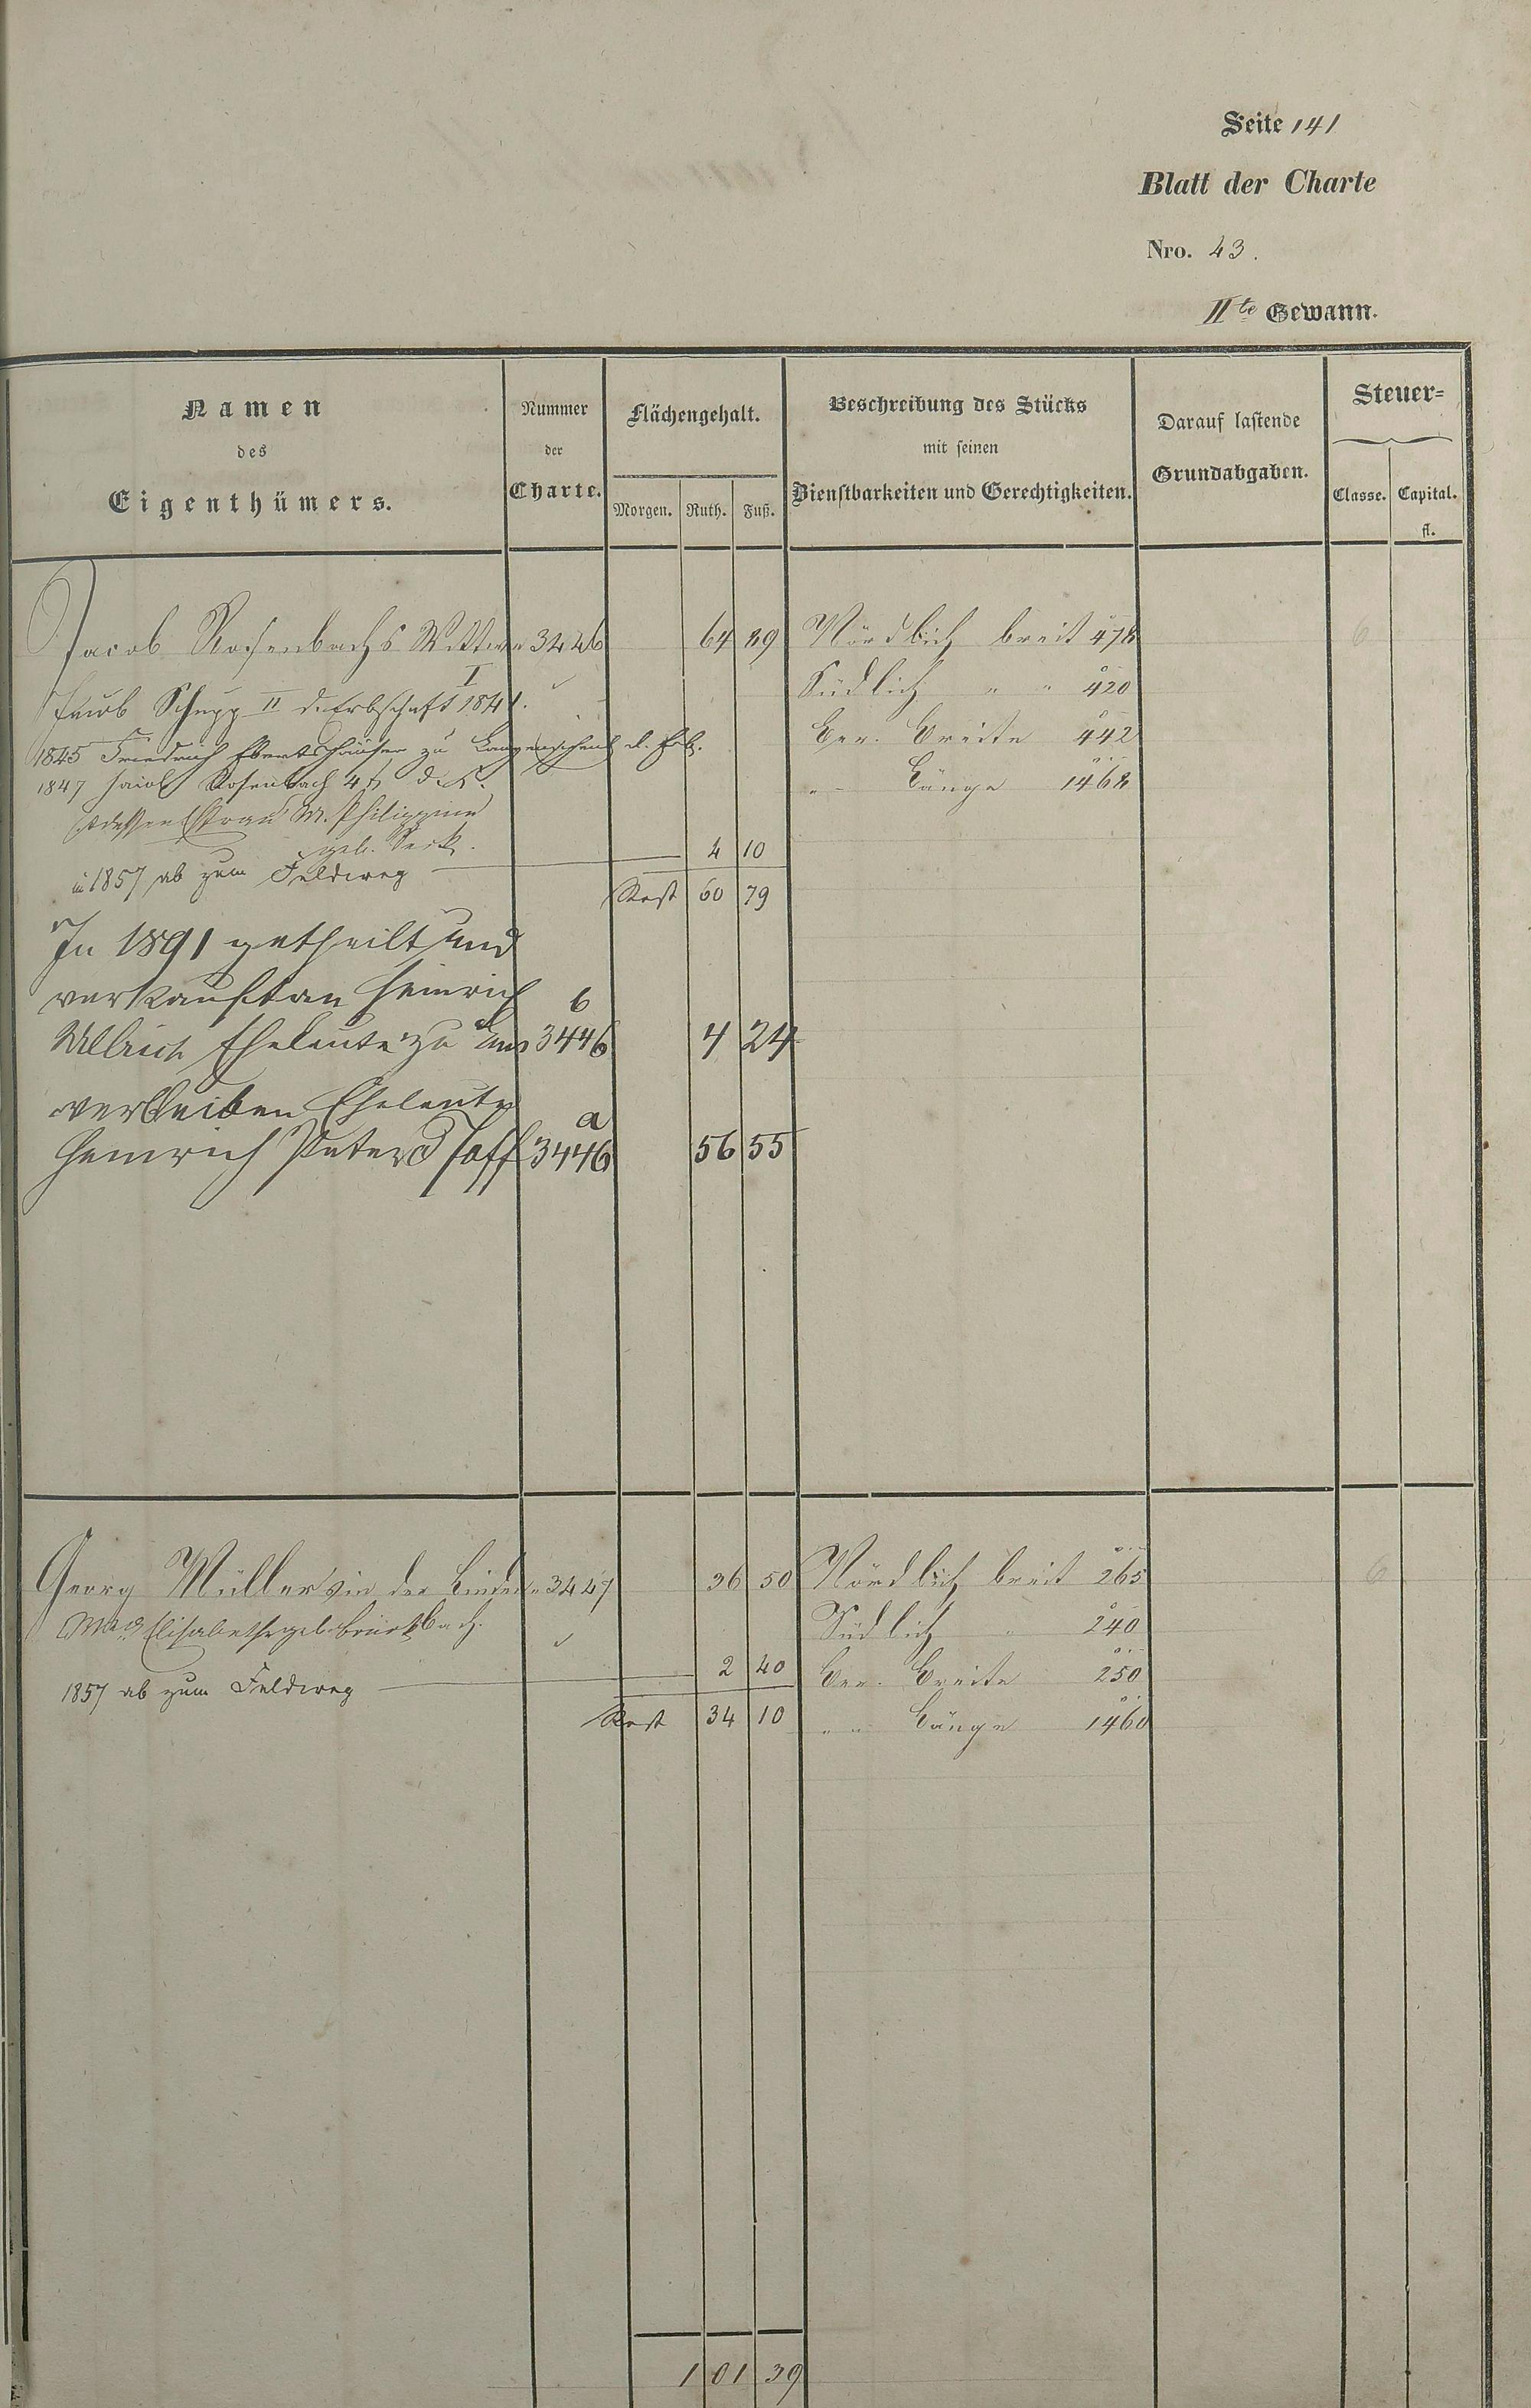 Seite 141
Blatt der Charte
Nro. 43.
IIte Gewann.
Namen des Eigenthümers.
Nummer der Charte.
Flächengehalt.
Morgen. Ruth. Fuß.
Beschreibung des Stücks mit seinen Dienstbarkeiten und Gerechtigkeiten.
Darauf lastende Grundabgaben.
Steuer=
Classe. Capital. fl.
Jacob Rosenbachs Wittwe 3446 64 89 Nördlich breit 478 6
I
Jacob Schupp II d. Erbschaft 1841. Südlich " " 420
1845 Friedrich Ebertshäuser zu d. Erb. Ger. Breite 442
1847 Jacob Rosenbach 4t d. K. " " Länge 1468
dessen Frau M. Philippine
geb. 4 10
in 1857 ab zum Feldweg
Rest 60 79
In 1891 getheilt und
verkauft an Heinrich b
Ullrich Eheleute zu Ems 3446 4 24
verbleiben Eheleute a
Heinrich Peter 3446 56 55
Georg Müller in der 3447 36 50 Nördlich breit 265 6
Elisabetha geb. Südlich " 240
2 40 Ger. Breite 250
1857 ab zum Feldweg
Rest 34 10 " " Länge 1460
1 01 39